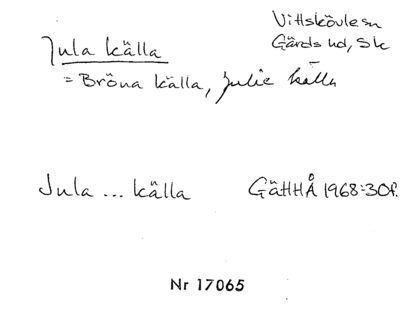 Vittskövle sn
Gärds hd, Sk
Jula källa
= Bröna källa, Julie källa
Jula ... källa GäHHÅ 1968:30f.
Nr 17065